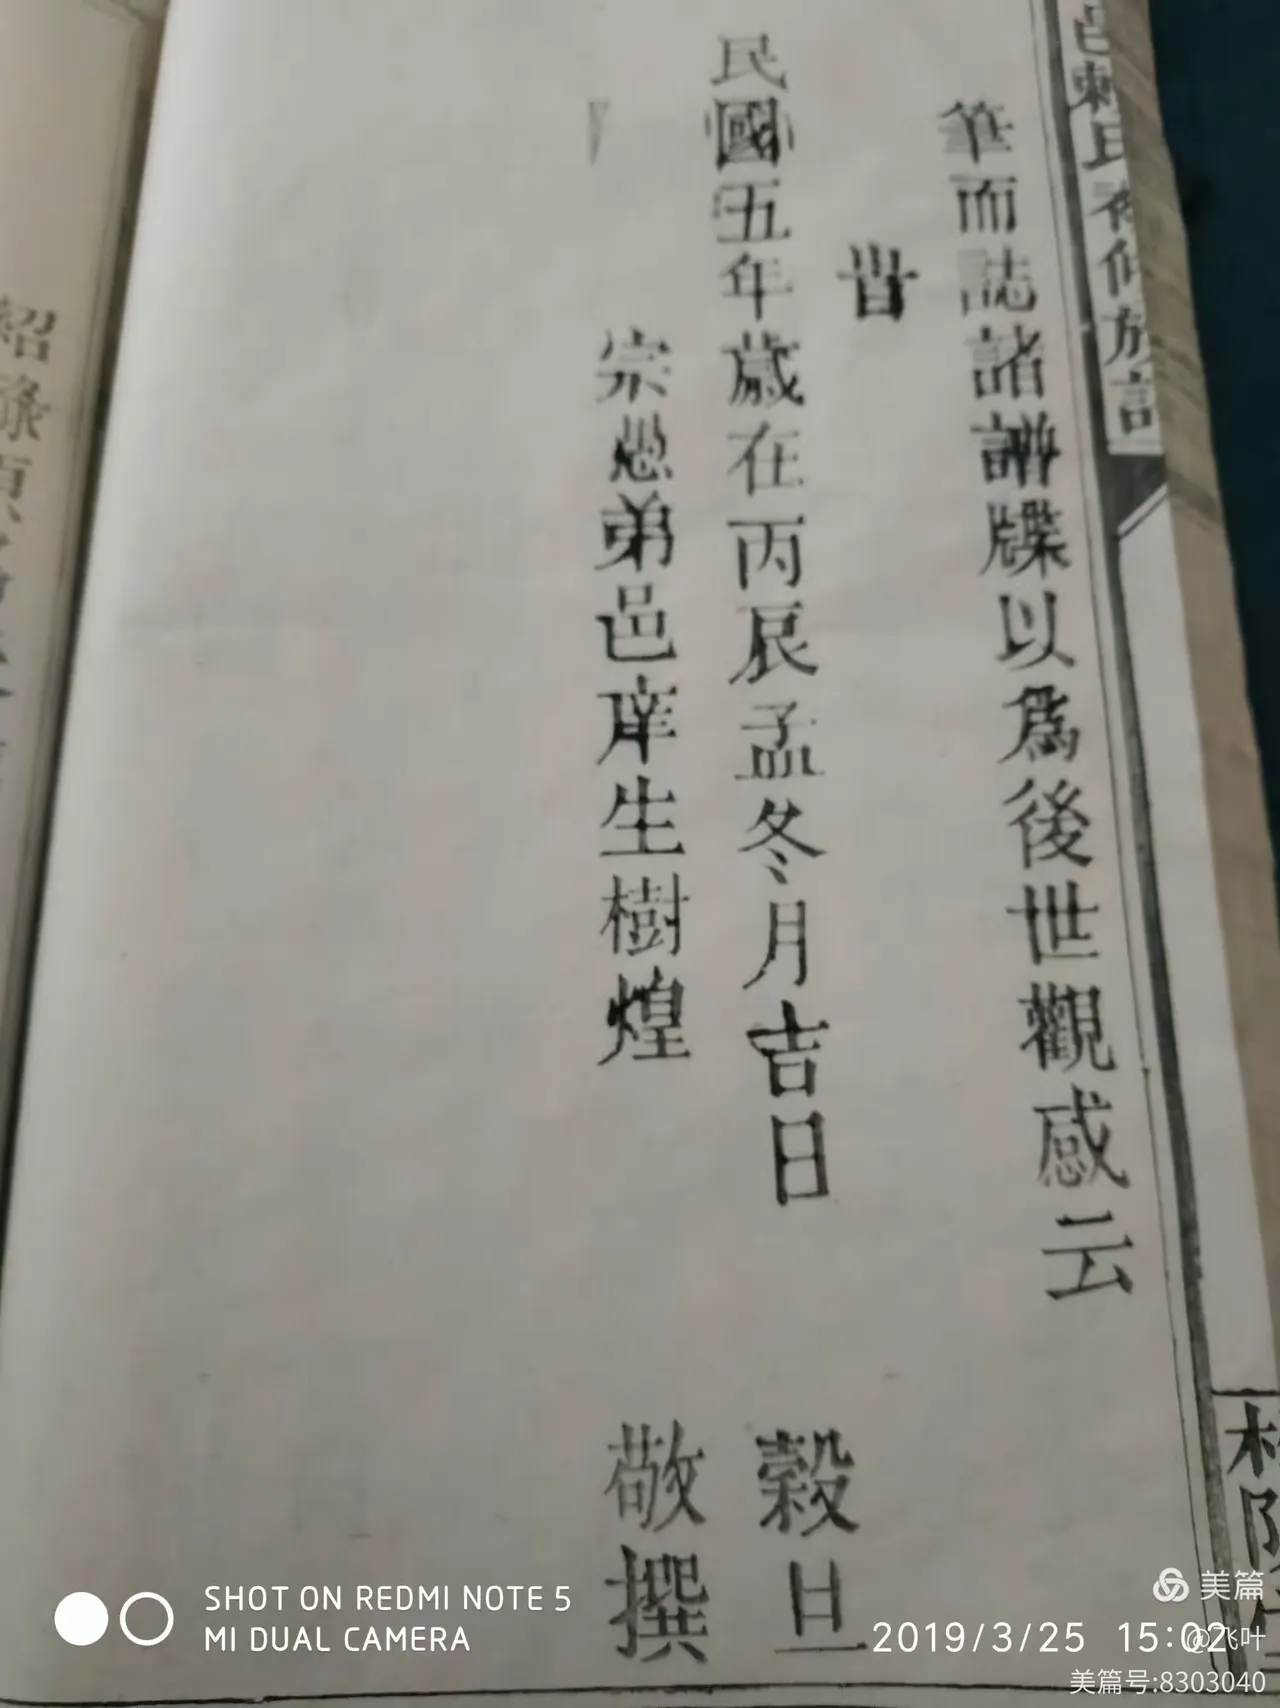 筆而誌諸譜牒以為後世觀感云
旹
民國五年歲在丙辰孟冬月吉日穀旦
宗愚弟邑庠生樹煌敬撰
紹
SHOT ON REDMI NOTE 5
MI DUAL CAMERA
美篇
2019/3/25 15:02
@飞叶
美篇号:8303040